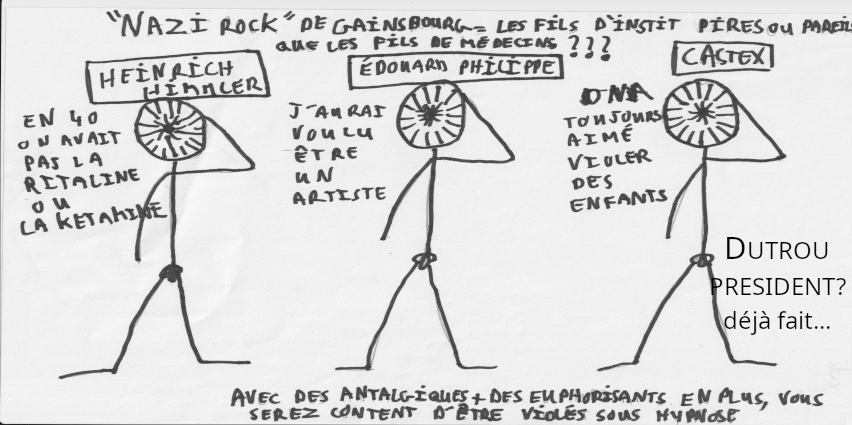 "NAZI ROCK" DE GAINSBOURG = LES FILS D'INSTIT PIRES OU PAREILS
QUE LES FILS DE MÉDECINS ???
HEINRICH
HIMMLER
EN 40
ON AVAIT
PAS LA
RITALINE
OU
LA KETAMINE
ÉDOUARD PHILIPPE
J'AURAI
VOULU
ÊTRE
UN
ARTISTE
CASTEX
ON A
TOUJOURS
AIMÉ
VIOLER
DES
ENFANTS
DUTROU
PRESIDENT?
déjà fait...
AVEC DES ANTALGIQUES + DES EUPHORISANTS EN PLUS, VOUS
SEREZ CONTENT D'ÊTRE VIOLÉS SOUS HYPNOSE